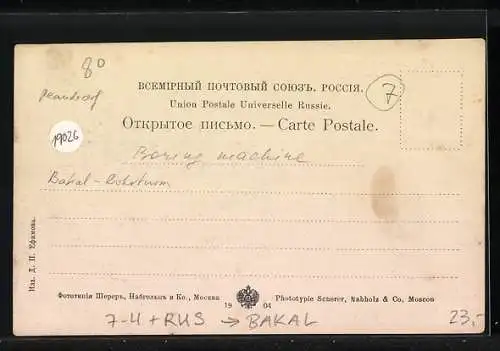 80
7
ВСЕМІРНЫЙ ПОЧТОВЫЙ СОЮЗЪ. РОССІЯ.
Union Postale Universelle Russie.
Открытое письмо. — Carte Postale.
19026
Boring machine
Bakal -
Изд. Д. П. Ефимова.
Фототипія Шереръ, Набгольцъ и Ко., Москва
19 04
Phototypie Scherer, Nabholz & Co, Moscou
7-4 + RUS → BAKAL
23,-